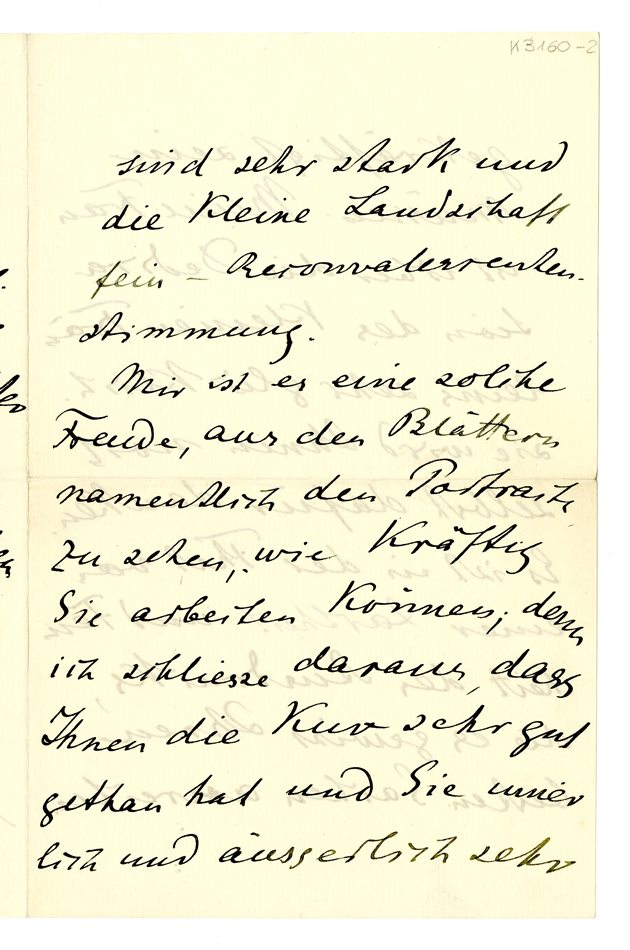 K3160-2
sind sehr stark und
die kleine Landschaft
fein – Reconvalescenten-
stimmung.
Mir ist es eine solche
Freude, aus den Blättern
namentlich den Portraits
zu sehen, wie kräftig
Sie arbeiten können; denn
ich schliesse daraus, dass
Ihnen die Kur sehr gut
gethan hat und Sie inner
lich und äusserlich sehr